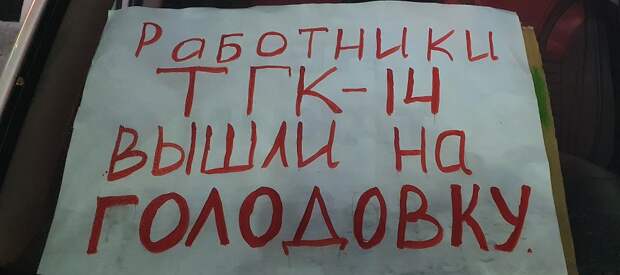 Работники
ТГК-14
вышли на
голодовку.